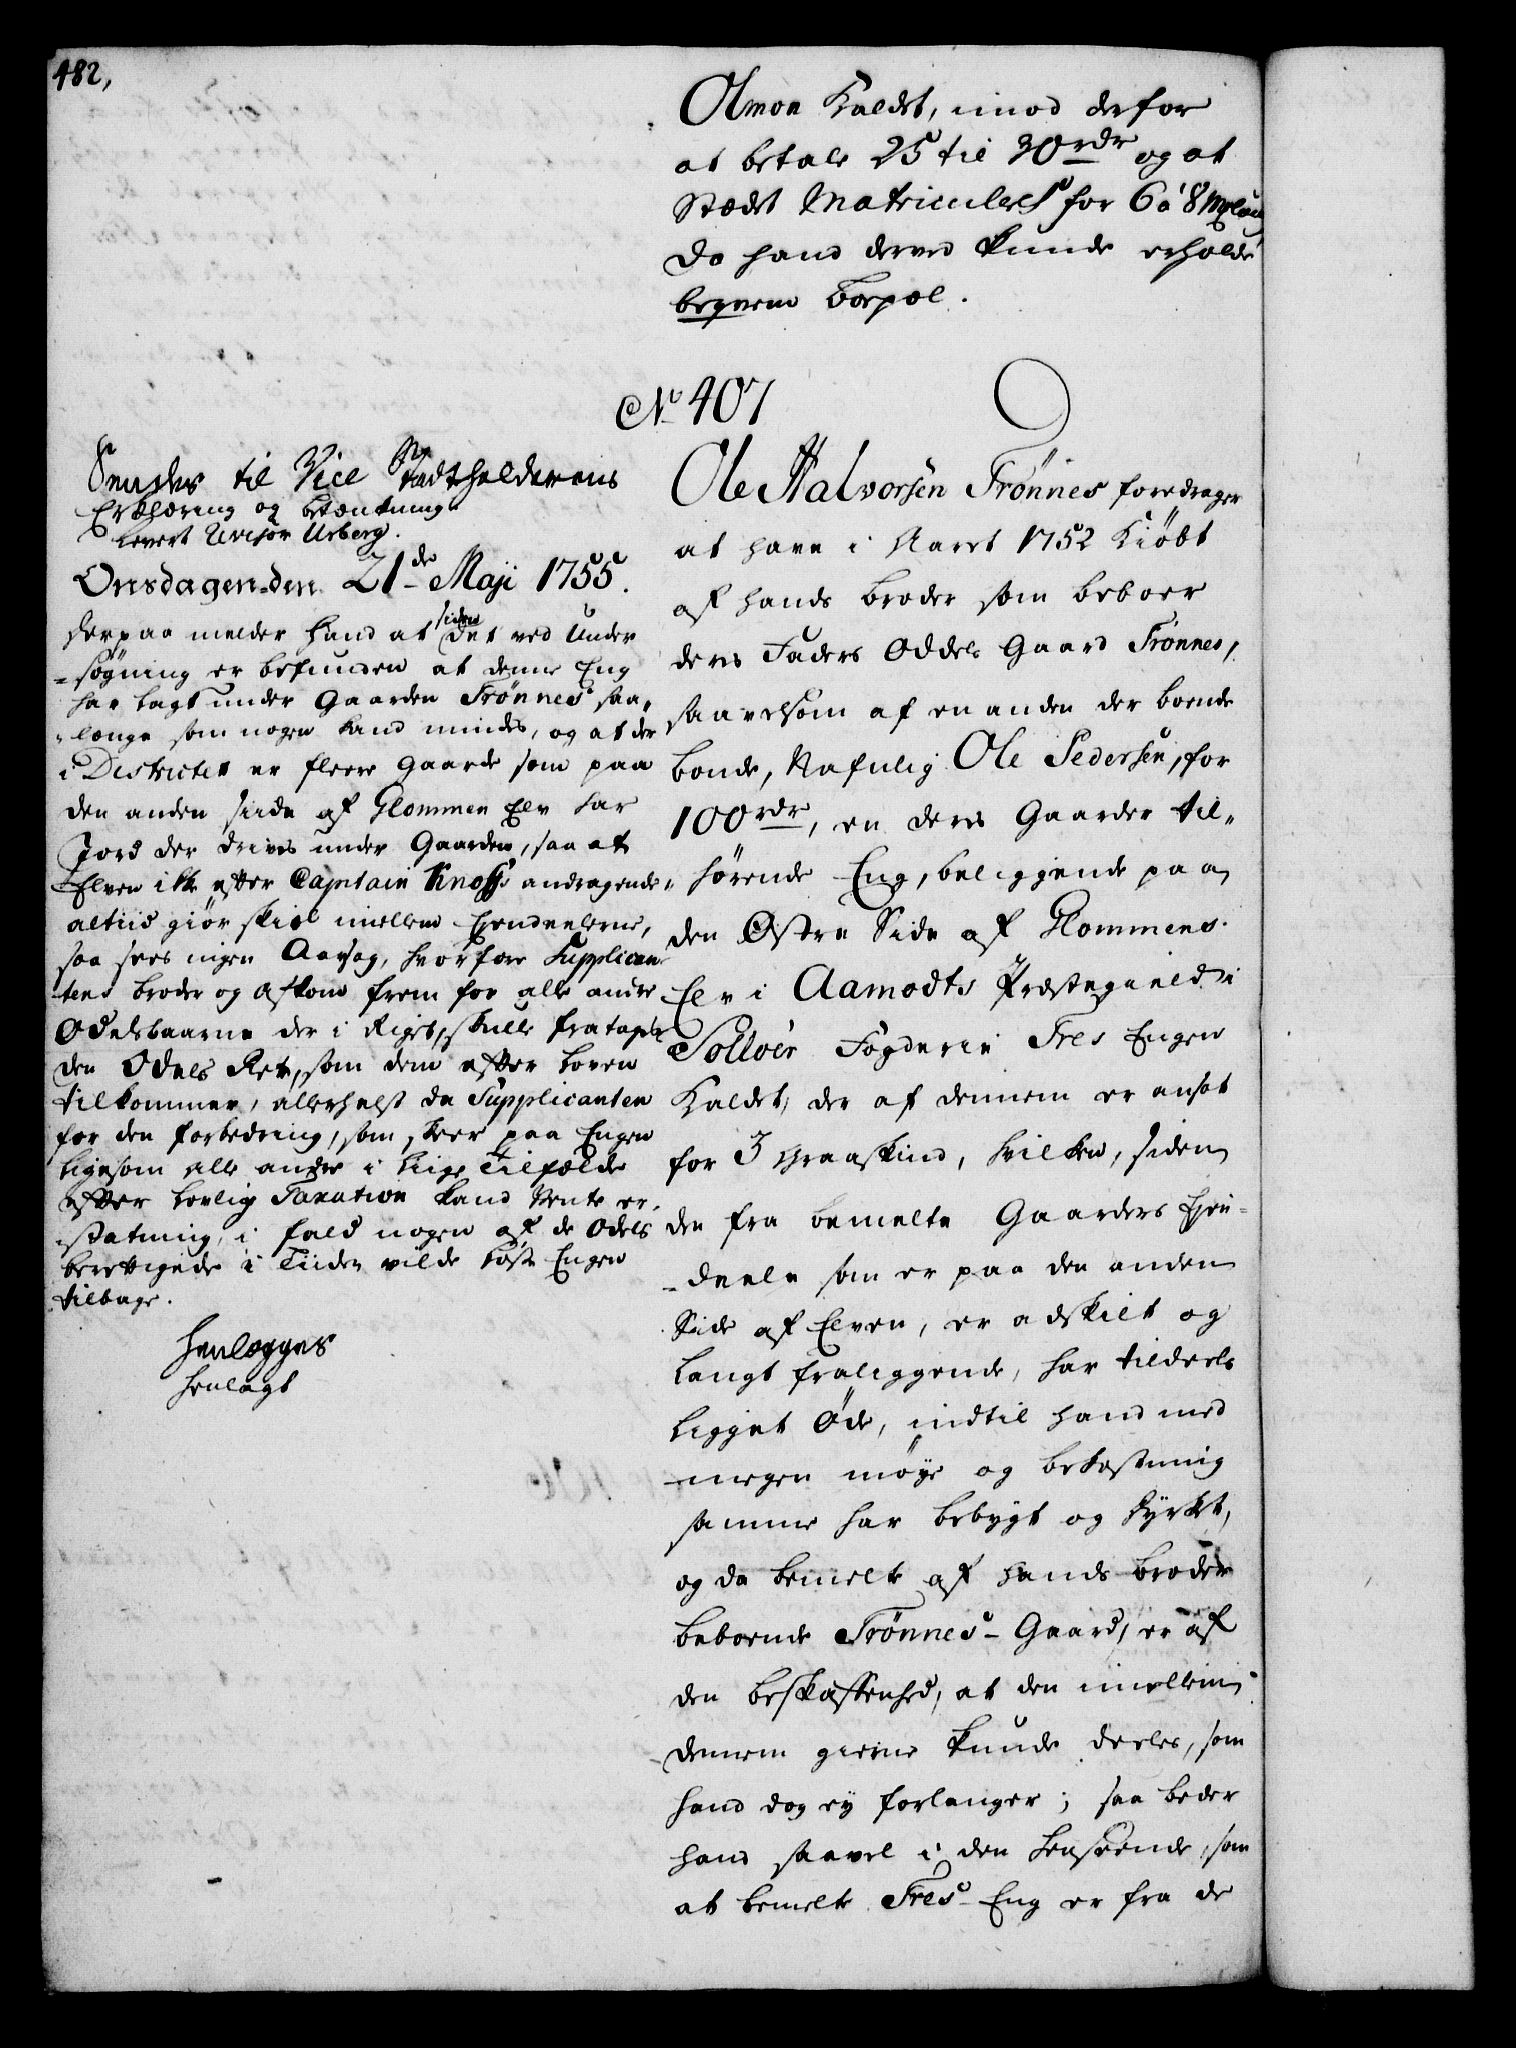 482,
Olmoa kaldet, imod derfor
at betale 25 til 30 rdr og at
Stædet Matriculeres for 6 a 8
da hand derved kunde erholde
beqvem Boepæl.
No 407
Ole Halvorsen Trønnes foredrager
at have i Aaret 1752 kiøbt
af hands broder som beboer
deris Faders Oddels Gaard Trønnes,
saavelsom af en anden der boende
bonde, Nafnlig Ole Pedersen, for
100 rdr, en deris Gaarder til-
hørende Eng, beliggende paa
den Østre Side af Glommens
Elv i Aamodts Præstegield i
Solløer Fogderie Tres Engen
kaldet, der af dennem er ansat
for 3 Graaskind, hvilken, siden
den fra bemelte Gaarders Eyen-
deele som er paa den anden
Side af Elven, er adskilt og
langt fraliggende, har tildeels
ligget Øde, indtil hand med
megen møye og bekostning
samme har bebygt og dyrket,
og da bemelte af hands broder
beboende Trønnes-Gaard, er af
den beskaffenhed, at den imellem
dennem gierne kunde deeles, som
hand dog ey forlanger; saa beder
hand saavel i den henseende, som
at bemelte Tres-Eng er fra de
Sendes til Vice Stadtholderens
Erklæring og betænkning
levert Revisor Urberg.
Onsdagen den 21de Maji 1755.
derpaa melder hand at siden det ved Under
-søgning er befunden at denne Eng
har lagt under Gaarden Trønnes saa-
-længe som nogen kand mindes, og at der
i Districtet er fleere Gaarde som paa
den anden siide af Glommen Elv har
Jord der drives under Gaarden, saa at
Elven ikke efter Captain Knoffs andragende
altiid giør skiel imellem Eyendeelerne,
saa sees ingen Aarsag, hvorfore Supplican
tens broder og afkom frem for alle andre
Odelsbaarne der i Riget, skulle fratages
den Odels Ret, som dem efter loven
tilkommer, allerhelst da Supplicanten
for den forbedring, som skeer paa Engen
ligesom alle andre i liige Tilfælde
efter lovlig Taxation kand vente er-
-statning, i fald nogen af de Odels
berettigede i Tiiden vilde løse Engen
tilbage.
henlægges
henlagt